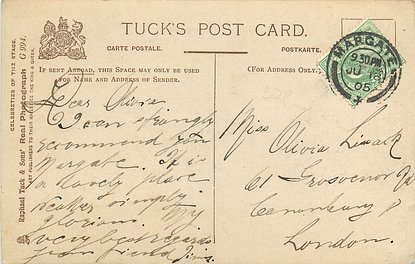 TUCK'S POST CARD.
CARTE POSTALE. POSTKARTE.
IF SENT ABROAD, THIS SPACE MAY ONLY BE USED
FOR NAME AND ADDRESS OF SENDER.
(FOR ADDRESS ONLY.)
CELEBRITIES OF THE STAGE.
Raphael Tuck & Sons' Real Photograph G 994.
ART PUBLISHERS TO THEIR MAJESTIES THE KING & QUEEN.
MARGATE
9.30PM
JU 18
05
Dear Olivia
I can strongly
recommend you
Margate. It is
a lovely place
weather simply
glorious. My
very best regards
from
Miss Olivia
61 Grosvenor
Canonbury
London.